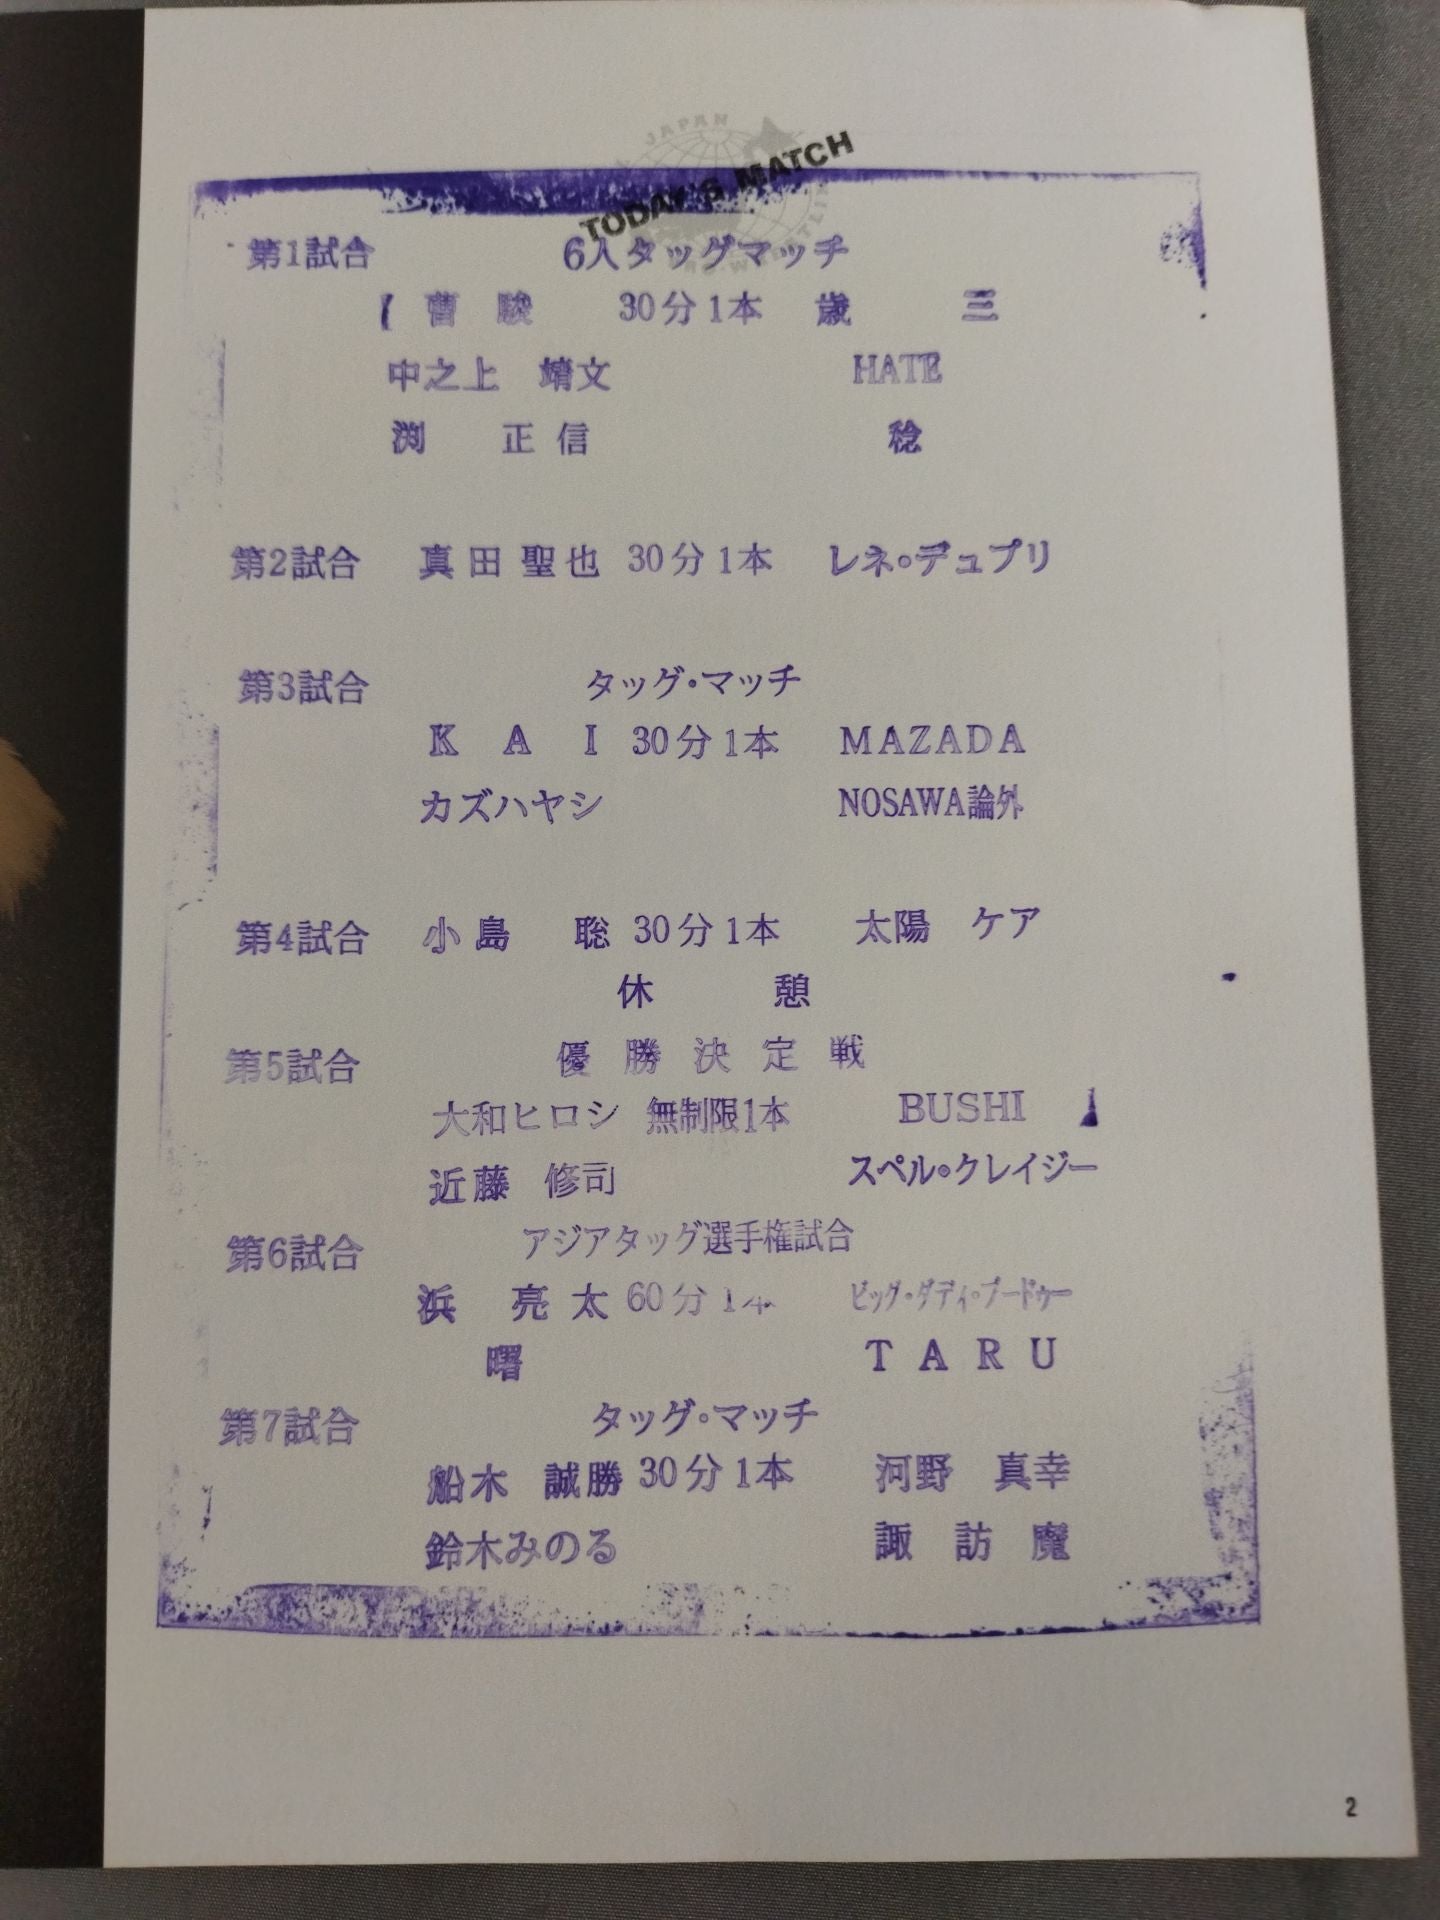 JAPAN
TODAY'S MATCH
第1試合 6人タッグマッチ
曹駿 30分1本 歳三
中之上 靖文 HATE
渕 正信 稔
第2試合 真田聖也 30分1本 レネ・デュプリ
第3試合 タッグ・マッチ
KAI 30分1本 MAZADA
カズハヤシ NOSAWA論外
第4試合 小島 聡 30分1本 太陽 ケア
休憩
第5試合 優勝決定戦
大和ヒロシ 無制限1本 BUSHI
近藤 修司 スペル・クレイジー
第6試合 アジアタッグ選手権試合
浜 亮太 60分1本 ビッグ・ダディ・ブードゥー
曙 TARU
第7試合 タッグ・マッチ
船木 誠勝 30分1本 河野 真幸
鈴木みのる 諏訪魔
2